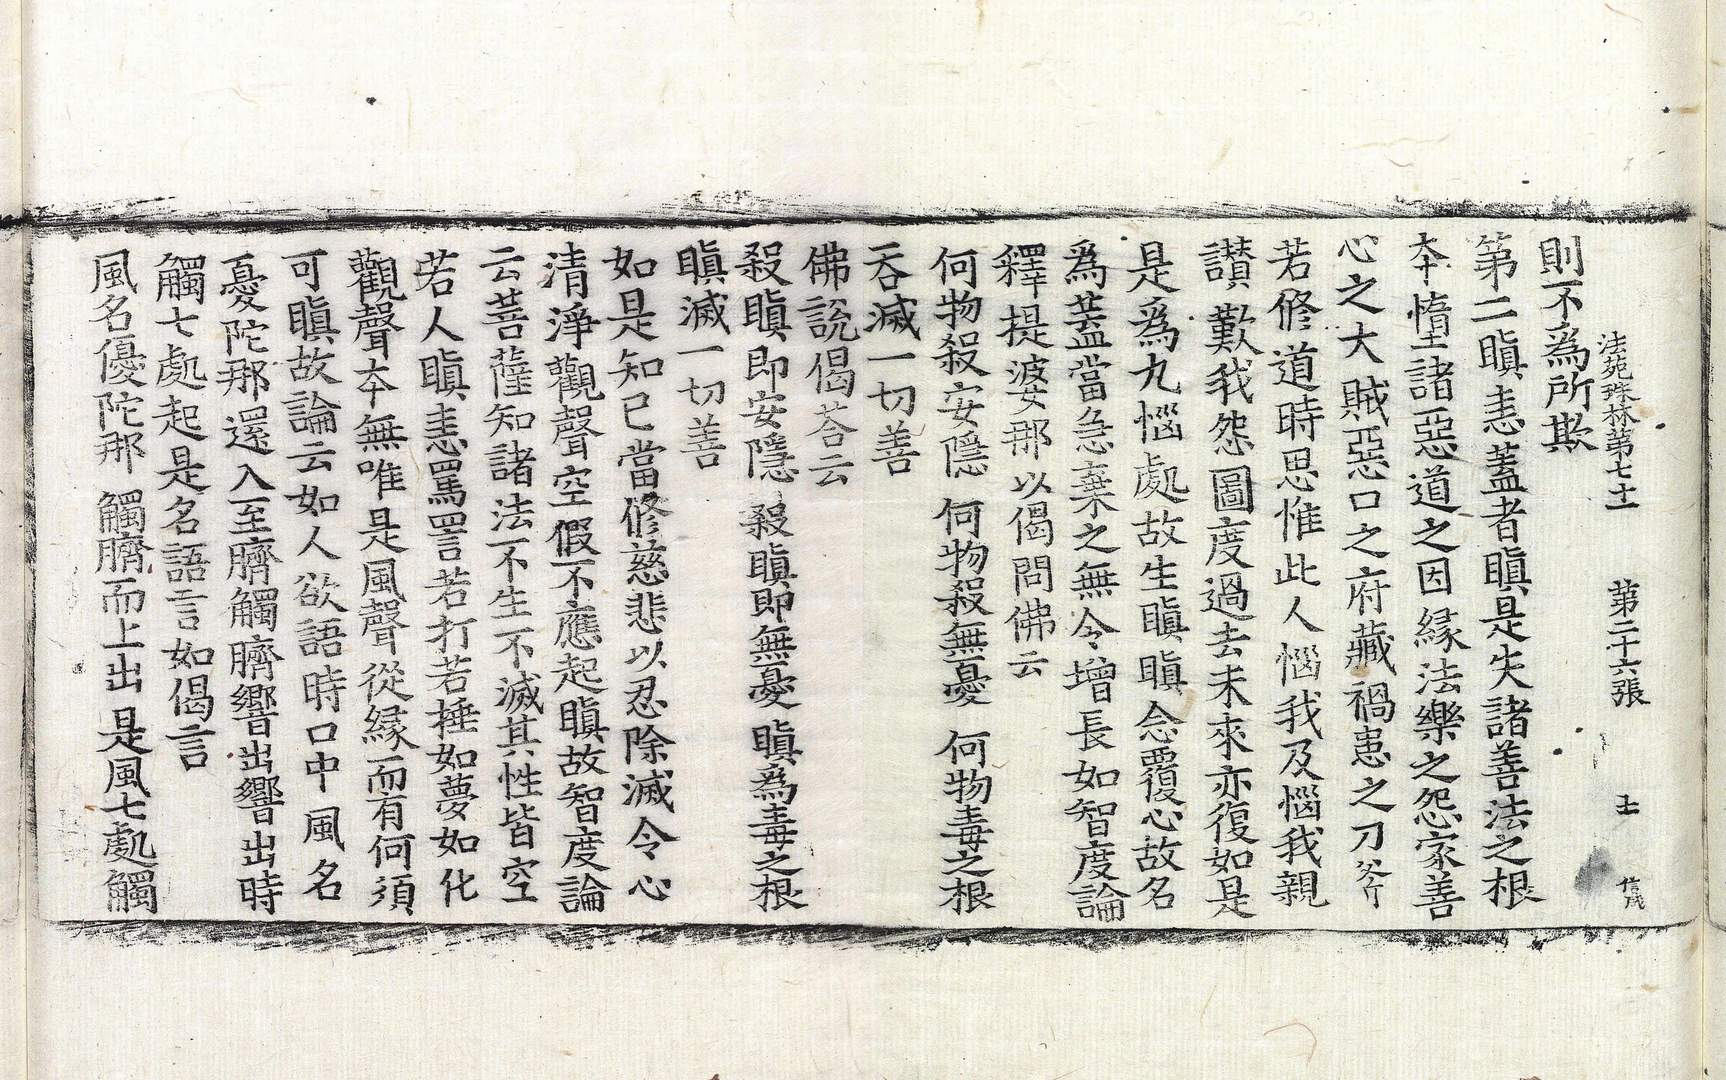 法苑珠林第七十一 第二十六張 士
則不爲所欺
第二瞋恚蓋者瞋是失諸善法之根
本墮諸惡道之因緣法樂之怨家善
心之大賊惡口之府藏禍患之刀斧
若修道時思惟此人惱我及惱我親
讃歎我怨圖度過去未來亦復如是
是爲九惱處故生瞋瞋念覆心故名
爲蓋當急棄之無令增長如智度論
釋提婆那以偈問佛云
何物殺安隱 何物殺無憂 何物毒之根
吞滅一切善
佛説偈荅云
殺瞋即安隱 殺瞋即無憂 瞋爲毒之根
瞋滅一切善
如是知已當修慈悲以忍除滅令心
清淨觀聲空假不應起瞋故智度論
云菩薩知諸法不生不滅其性皆空
若人瞋恚罵詈若打若捶如夢如化
觀聲本無唯是風聲從緣而有何須
可瞋故論云如人欲語時口中風名
憂陀那還入至臍觸臍響出響出時
觸七處起是名語言如偈言
風名優陀那 觸臍而上出 是風七處觸